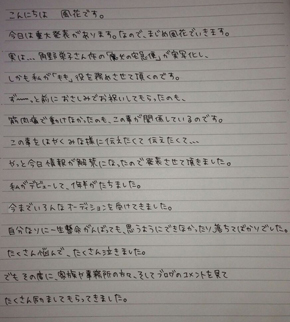 こんにちは 風花です。
今日は重大発表があります。なので、まじめ風花でいきます。
実は… 角野栄子さん作の「魔女の宅急便」が実写化し、
しかも私が「キキ」役を務めさせて頂くのです。
ずーっと前におさしみでお祝いしてもらったのも、
筋肉痛で動けなかったのも、この事が関係しているのです。
この事をはやくみな様に伝えたくて伝えたくて…
やっと今日情報が解禁になったので発表させて頂きました。
私がデビューして、1年半がたちました。
今までいろんなオーディションを受けてきました。
自分なりに一生懸命がんばっても、思うようにできなかったり、落ちてばかりでした。
たくさん悩んで、たくさん泣きました。
でもその度に、家族や事務所の方々、そしてブログのコメントを見て
たくさん励ましてもらってきました。